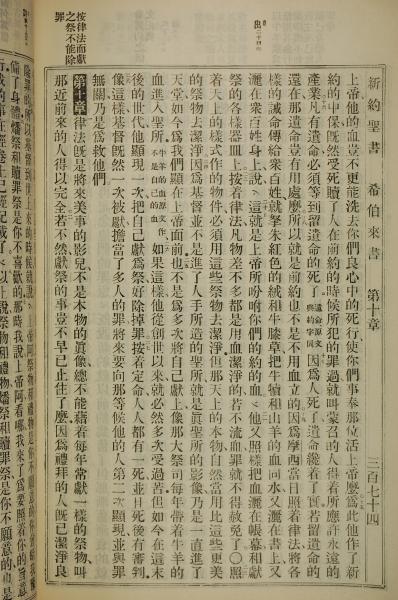 新約聖書 希伯來書 第十章 三百七十四
上帝他的血豈不更能洗去你們良心中的死行使你們事奉那位活上帝麼爲此他作了新
約的中保既然受死贖了人在前約的時候所犯的罪過就叫蒙召的人得着所應許永遠的
產業凡有遺命必須等到留遺命的死了遺命原文與約字同因爲人死了遺命纔着了實若留遺命的
還在那遺命豈有用處麼所以就是前約也不是不用血立的因爲摩西當日照着律法將各
樣的誡命傳給衆百姓就拏朱紅色的絨和牛膝草把牛犢和山羊的血同水又灑在書上又
灑在衆百姓身上說這就是上帝所吩咐你們的約的血他又照樣把血灑在帳幕和獻
祭的各樣器皿上按着律法凡物差不多都是用血潔淨的若不流血罪就不得赦免了〇照
着天上的樣式作的物件必須用這些祭物去潔淨但那天上的本物自然當用比這些更美
的祭物去潔淨因爲基督並不是進了人手所造的聖所就是眞聖所的影像乃是一直進了
天堂如今爲我們顯在上帝面前也不是爲多次將自己獻上像那大祭司每年帶着牛羊的
血進入聖所牛羊的血原文作不是自己的血如果這樣他從創世以來就必然多次受過苦但如今在這末
後的世代他顯現一次把自己獻爲祭好除掉罪按着定命人人都有一死並且死後有審判
像這樣基督既然一次被獻擔當了多人的罪將來要向那等候他的人第二次顯現並與罪
無關乃是爲救他們
按律法而獻
之祭不能除
罪
第十章律法既是將來美事的影兒不是本物的眞像總不能藉着每年常獻一樣的祭物叫
那近前來的人得以完全若不然獻祭的事豈不早已止住了麼因爲禮拜的人既已潔淨良